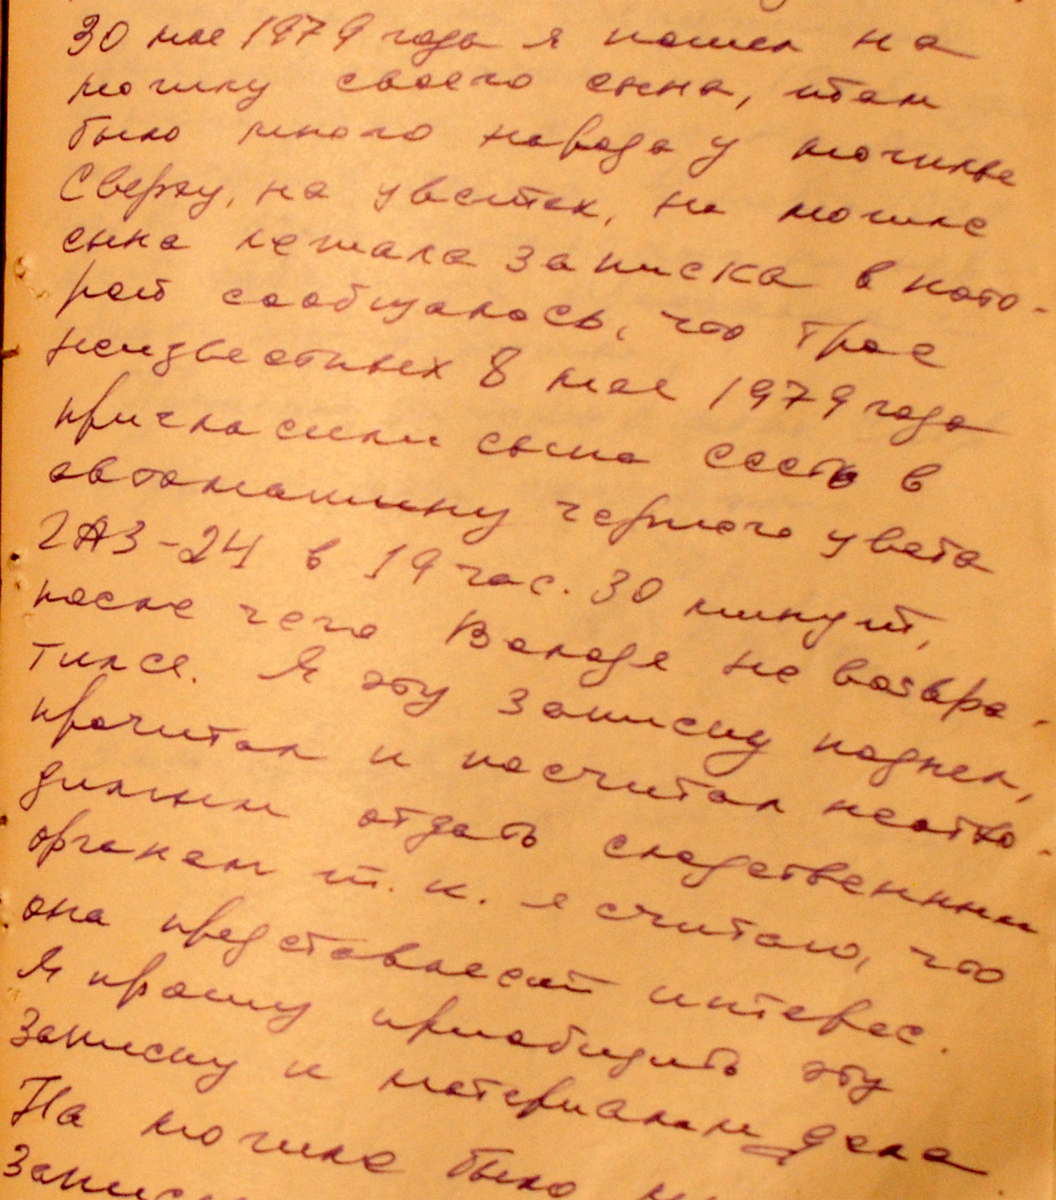 30 мая 1979 года я пошел на
могилку своего сына, там
было много народа у могилы
Сверху, на цветах, на могиле
сына лежала записка в кото-
рой сообщалось, что трое
неизвестных 8 мая 1979 года
пригласили сына сесть в
автомашину черного цвета
ГАЗ-24 в 19 час. 30 минут,
после чего Володя не возвра-
тился. Я эту записку поднял,
прочитал и посчитал необхо-
димым отдать следственным
органам т.к. я считаю, что
она представляет интерес.
Я прошу приобщить эту
записку к материалам дела
На могиле было